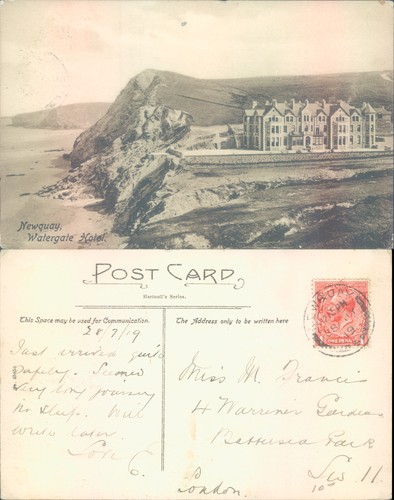 Newquay,
Watergate Hotel.
POST CARD.
Hartnoll's Series.
This Space may be used for Communication.
The Address only to be written here
28/7/19
Just arrived quite
safely. Seemed
very long journey
no sleep. Will
write later.
Love
C.
Miss M. Francis
4 Warriner Gardens
Battersea Park
London.
S.W. 11
ONE PENNY